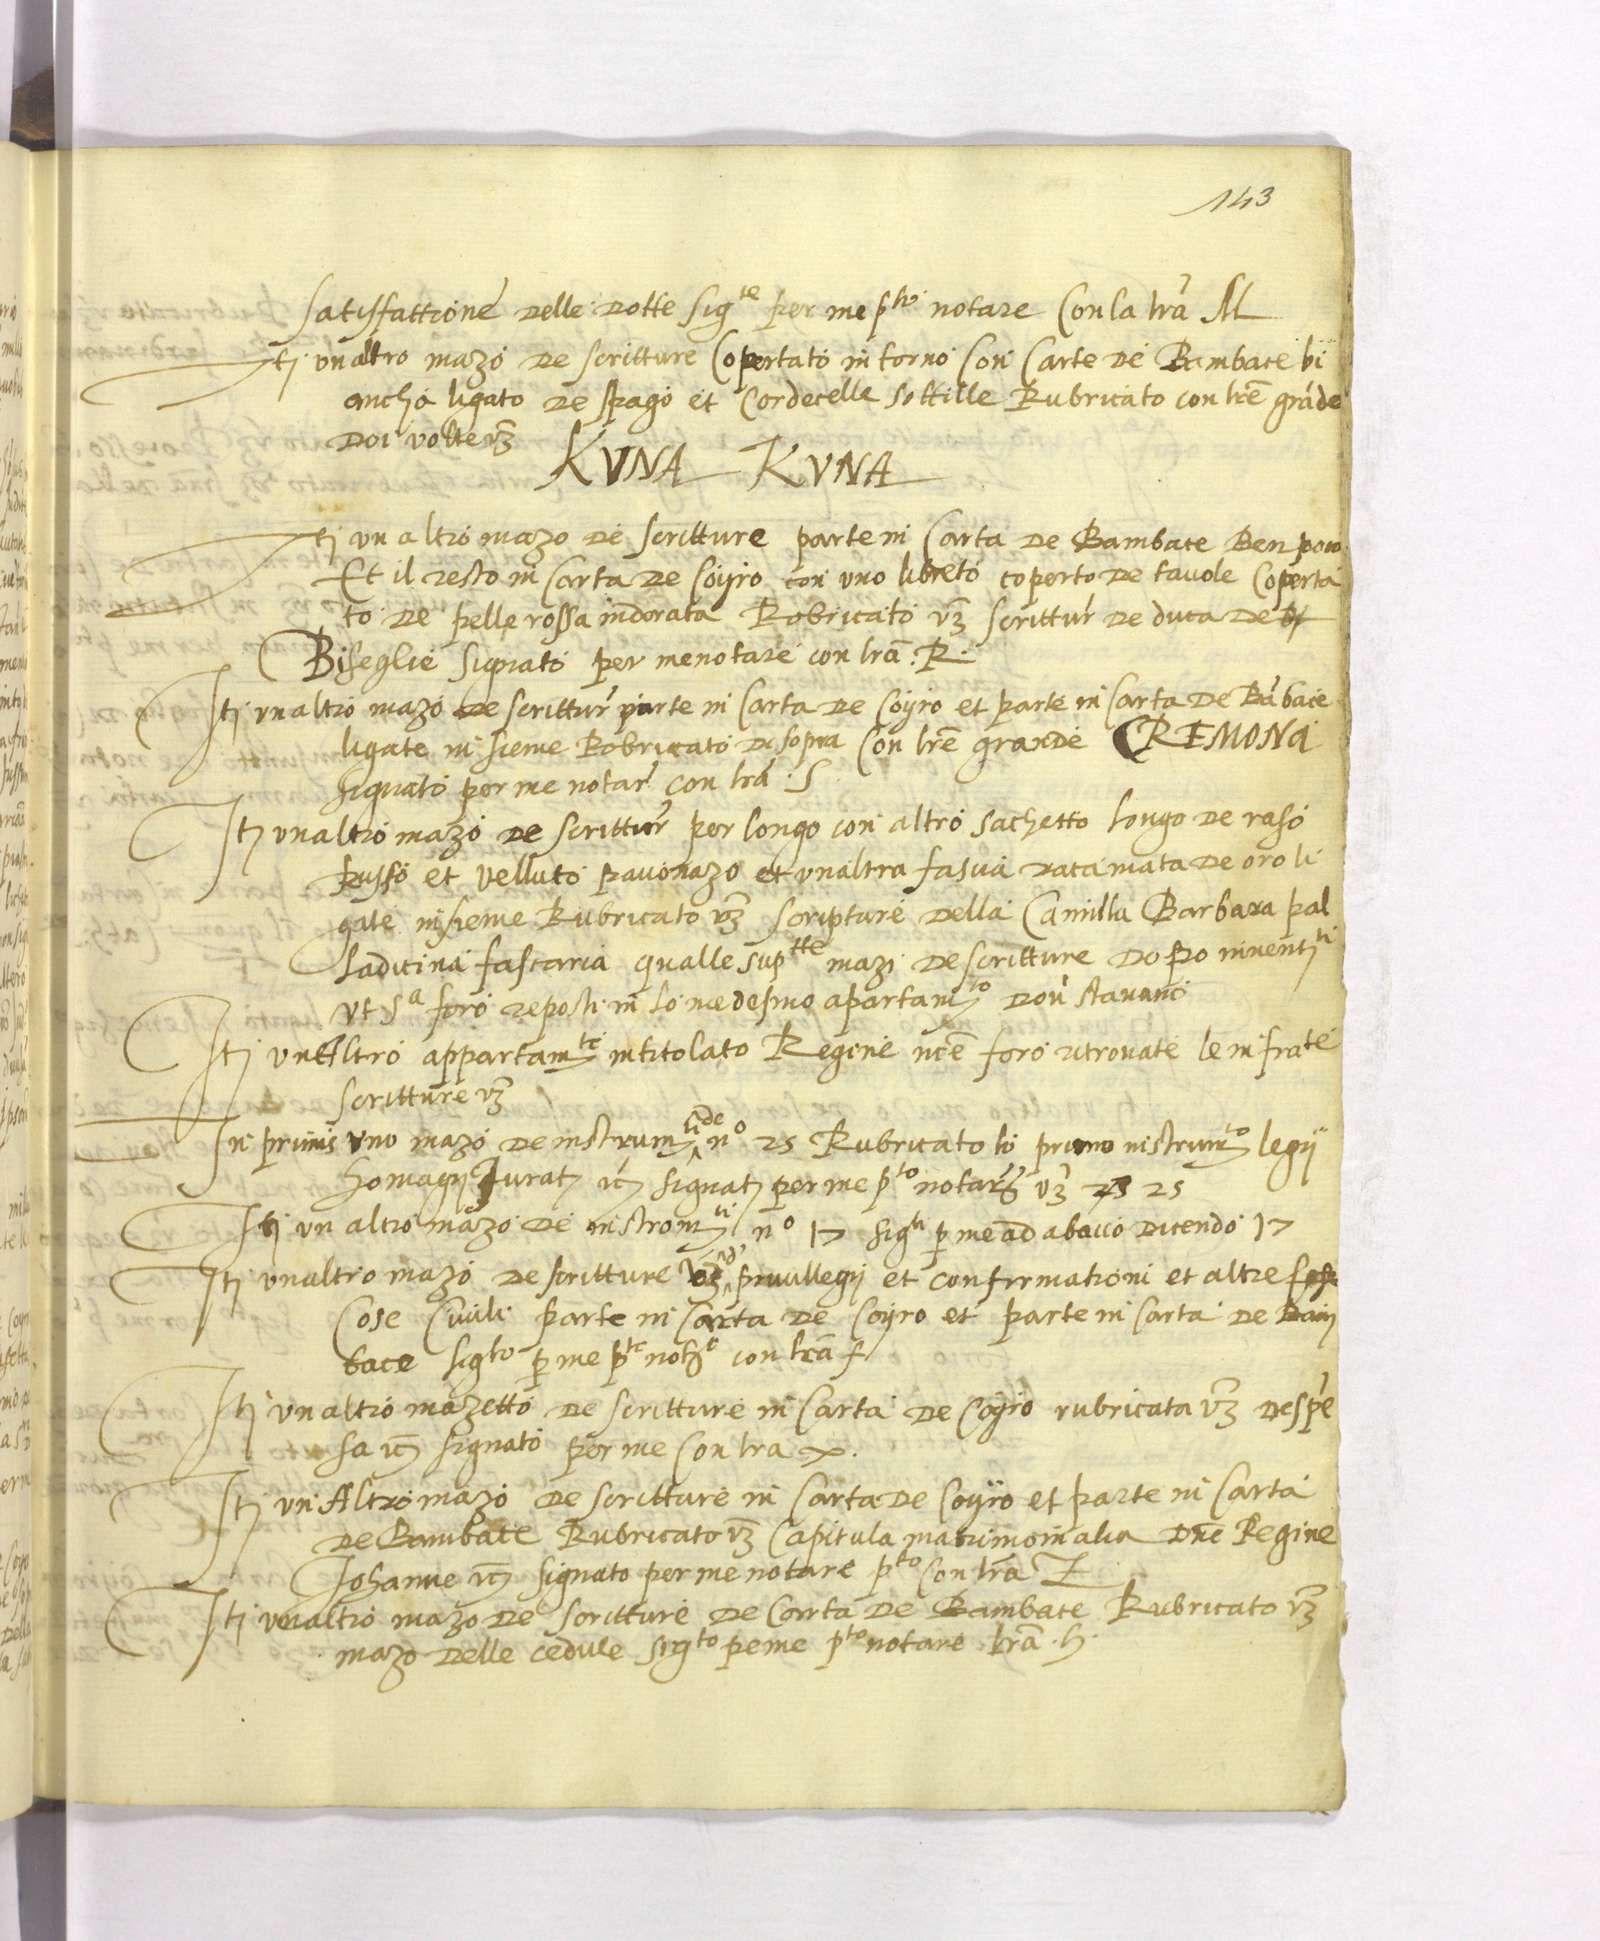 143
satisfattione delle dotte sig^te per me p^to notare con la lr̃a M
Itj un altro mazo de scritture copertato intorno con carte de Bambace bi
ancha ligato de spago et cordecelle sottille Rubricato con lr̃e grãde
doi volte vz
KVNA KVNA
Itj un altro mazo de scritture parte in carta de Bambace Ben poco
Et il resto in carta de coyro con uno libreto coperto de tavole coperta
to de pelle rossa indorata Robricato vz scrittur de duca de
Biseglie signato per me notare con lr̃a .R.
Itj un altro mazo de scrittur parte in carta de coyro et parte in carta de Bãbace
ligate insieme Robricato di sopra con lr̃e grande CREMONA
signato per me notar con lr̃a .S
Itj un altro mazo de scrittur per longo con altro sachetto longo de raso
Russo et velluto pavonazo et un altra fascia racamata de oro li
gate insieme Rubricato vz scripture della Camilla Barbara pal
ladicina fascaria qualle sup^tte mazi de scritture dopo inventi^ti
ut s^a foro reposti in lo medesmo apartam^to dov stavano
Itj un Altro appartam^te intitolato Regine nc̃e foro ritrovate le infrate
scritture vz
In primis uno mazo de instrum^ti de n^o 25 Rubricato lo primo instrum^to legij
homagij Juratj itj signatj per me p^to notar vz 25
Itj un altro mazo de instrom^ti n^o 17 sig^ti p me ad abaco dicendo 17
Itj un altro mazo de scritture vz privillegij et confirmationi et altre
cose civili parte in carta de coyro et parte in carta de Bam
bace sig^to p me p^te not^e con lr̃a f
Itj un altro mazetto de scritture in carta de coyro rubricata vz despe
sa itj signato per me con lra x.
Itj un Altro mazo de scritture in carta de coyro et parte in carta
de Bambace Rubricato vz capitula matrimonialia dñe Regine
Johanne itj signato per me notare p^to con lr̃a Z
Itj un altro mazo de scritture de carta de Bambace Rubricato vz
mazo delle cedule sig^to pe me p^to notare lr̃a .h.